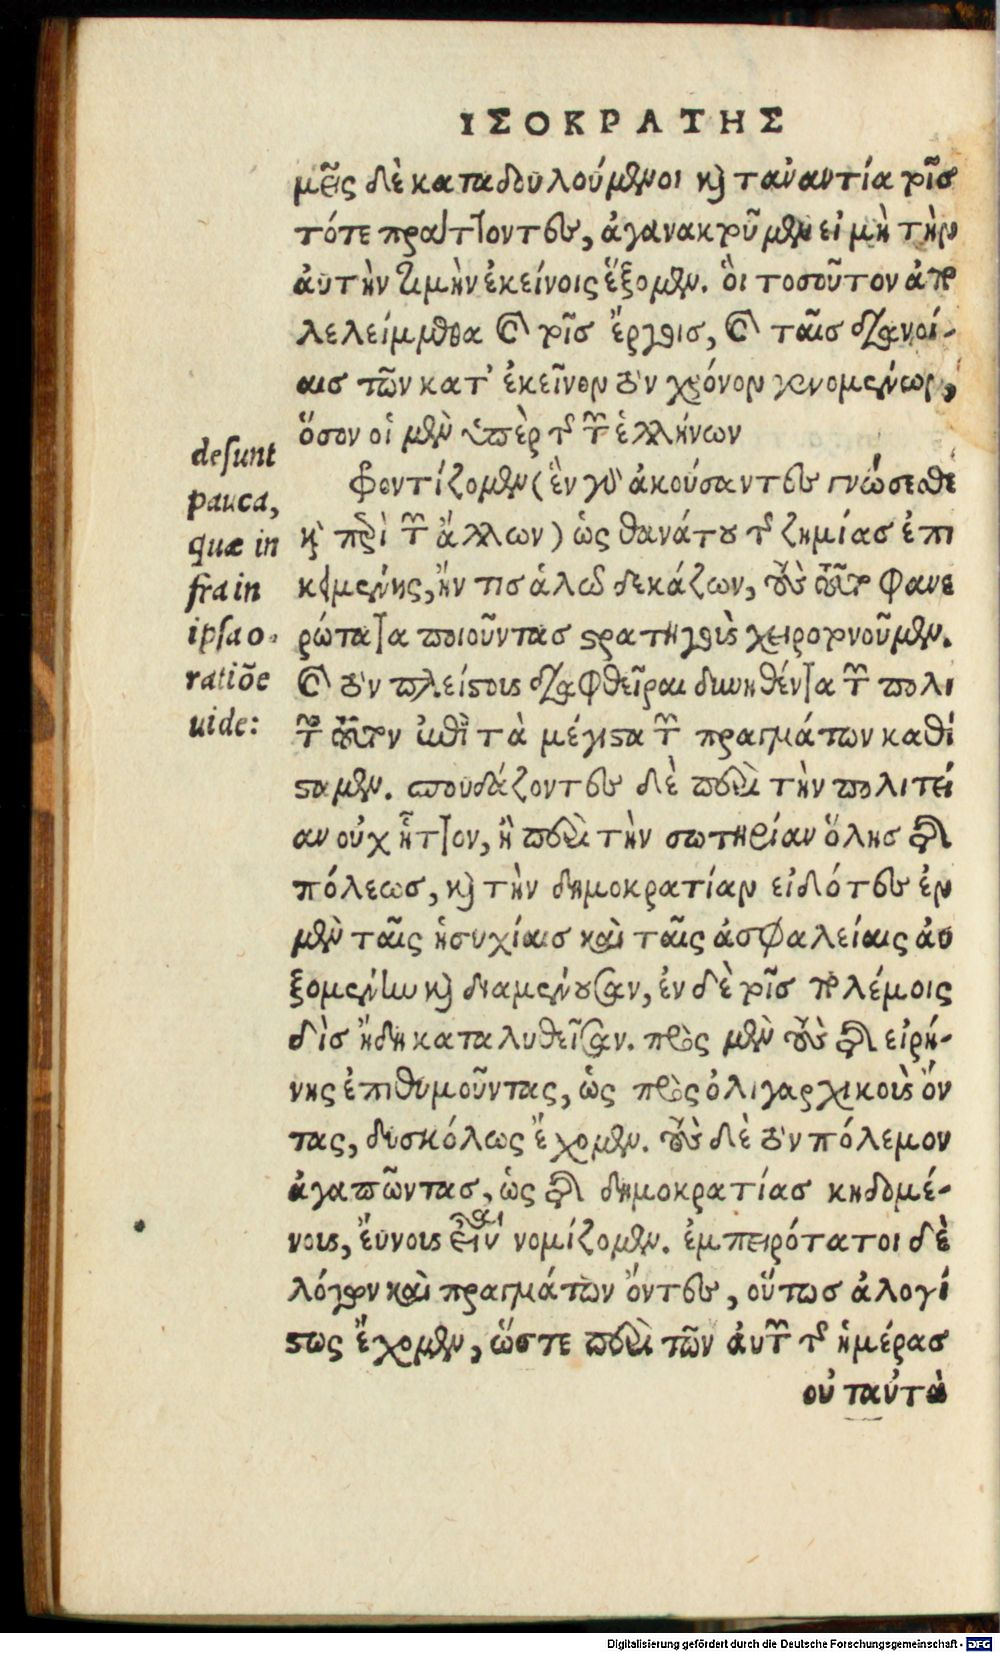 ΙΣΟΚΡΑΤΗΣ
μεῖς δὲ καταδουλούμενοι καὶ τἀναντία τοῖσ
τότε πράττοντες, ἀγανακτοῦμεν εἰ μὴ τὴν
ἀυτὴν τιμὴν ἐκείνοις ἕξομεν. ὃι τοσοῦτον ἀπο
λελείμμεθα καὶ τοῖσ ἔργοισ, καὶ ταῖσ διανοί-
αισ τῶν κατ' ἐκεῖνον τὸν χρόνον γενομένων,
ὅσον οἱ μὲν ὑπὲρ τῆς τῶν ἑλλήνων
φροντίζομεν (ἓν γὰρ ἀκούσαντες γνώσεσθε
καὶ περὶ τῶν ἄλλων) ὡς θανάτου τῆς ζημίασ ἐπι
κειμένης, ἤν τισ ἁλῶ δεκάζων, τοὺς τοῦτο φανε
ρώτατα ποιοῦντασ στρατηγοὺς χειροτονοῦμεν.
καὶ τὸν πλείστους διαφθεῖραι δυνηθέντα τῶν πολι
τῶν τοῦτον ἐπὶ τὰ μέγιστα τῶν πραγμάτων καθί
σταμεν. σπουδάζοντες δὲ περὶ τὴν πολιτεί
αν οὐχ ἧττον, ἢ περὶ τὴν σωτηρίαν ὅλησ τῆς
πόλεωσ, καὶ τὴν δημοκρατίαν εἰδότες ἐν
μὲν ταῖς ἡσυχίαισ καὶ ταῖς ἀσφαλείαις ἀυ
ξομένην καὶ διαμένουσαν, ἐν δὲ τοῖσ πολέμοις
δὶσ ἤδη καταλυθεῖσαν. πρὸς μὲν τοὺς τῆς εἰρή-
νης ἐπιθυμοῦντας, ὡς πρὸς ὀλιγαρχικοὺς ὄν
τας, δυσκόλως ἔχομεν. τοὺς δὲ τὸν πόλεμον
ἀγαπῶντασ, ὡς τῆς δημοκρατίασ κηδομέ-
νους, ἔυνους εἶναι νομίζομεν. ἐμπειρότατοι δὲ
λόγων καὶ πραγμάτων ὄντες, οὕτωσ ἀλογί
στως ἔχομεν, ὥστε περὶ τῶν ἀυτῶν τῆς ἡμέρασ
οὐ ταὐτὰ
desunt
pauca,
quæ in
fra in
ipsa o-
ratiōe
uide:
Digitalisierung gefördert durch die Deutsche Forschungsgemeinschaft - DFG